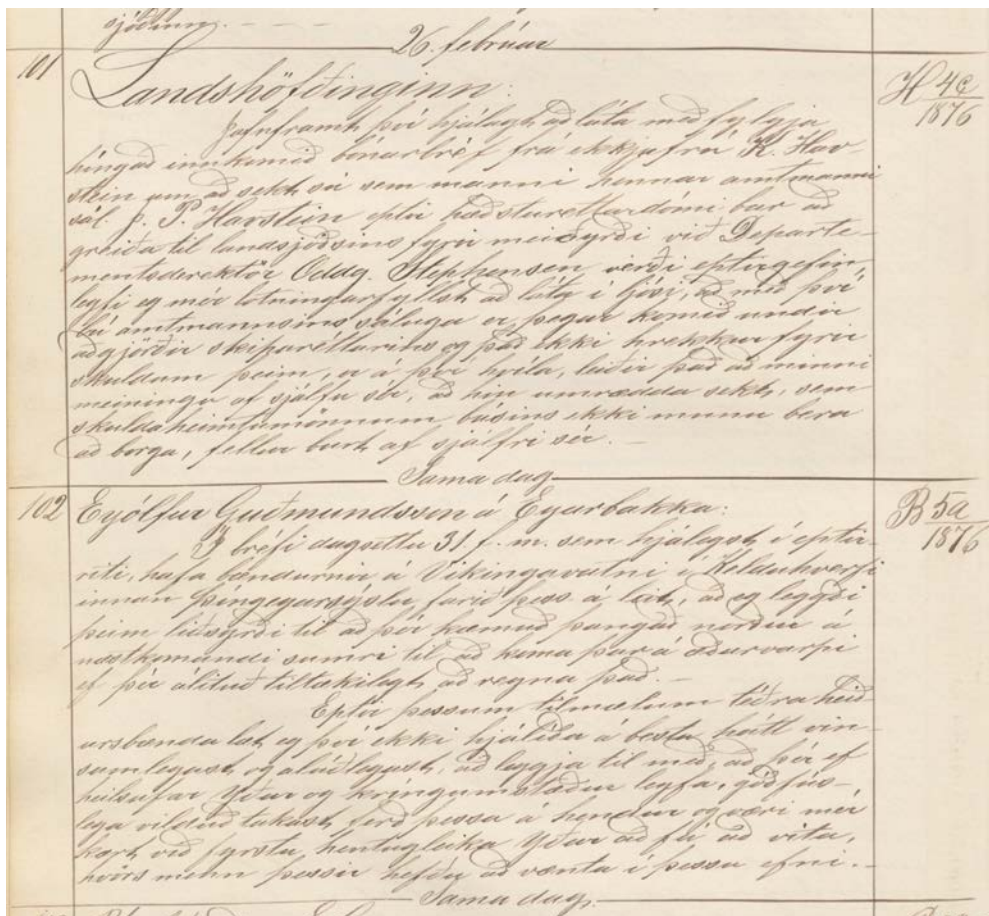 sjóðinn. - - -
26. februar
101
Landshöfðinginn:
H 4c/1876
Jafnframt því hjálagt að láta með fylgja
híngað innkomið bónarbréf frá ekkjufrú K. Hav
stein um að sekt sú sem manni hennar amtmanni
sál. P. Havstein eptir hæðstaréttardómi bar að
greiða til landsjóðsins fyrir meiðyrði við Departe-
mentsderektör Oddg. Stephensen verði eptirgefin,
leyfi eg mér lotningarfyllst að láta í ljósi, að með því
bú amtmannsins sáluga er þegar komið undir
aðgjörðir skiptaréttarins og það ekki hrekkur fyrir
skuldum þeim, er á því hvíla, leiðir það að minni
meiningu af sjálfu sér, að hin umrædda sekt, sem
skuldaheimtumönnum búsins ekki munu bera
að borga, fellur burt af sjálfri sér. -
Sama dag
102
Eyólfur Guðmundsson á Eyarbakka:
B 5a/1876
Í bréfi dagsettu 31. f. m. sem hjálegst í eptir-
riti, hafa bændurnir á Víkingavatni í Kelduhverfi
innan Þíngeyarsýslu farið þess á leit, að eg leggði
þeim liðsyrði til að þér kæmuð þangað norður á
næstkomandi sumri til að koma þar á æðarvarpi
ef þér álituð tiltækilegt að reyna það. -
Eptir þessum tilmælum téðra heið
ursbænda læt eg því ekki hjálíða á besta hátt vin-
samlegast og alúðlegast, að leggja til með, að þér ef
heilsufar Yðar og kríngumstæður leyfa, góðfús-
lega vilduð takast ferð þessa á hendur og væri mér
kært við fyrstu hentugleika Yðar að fá að vita,
hvörs menn þessir hefðu að vænta í þessu efni. -
Sama dag. -